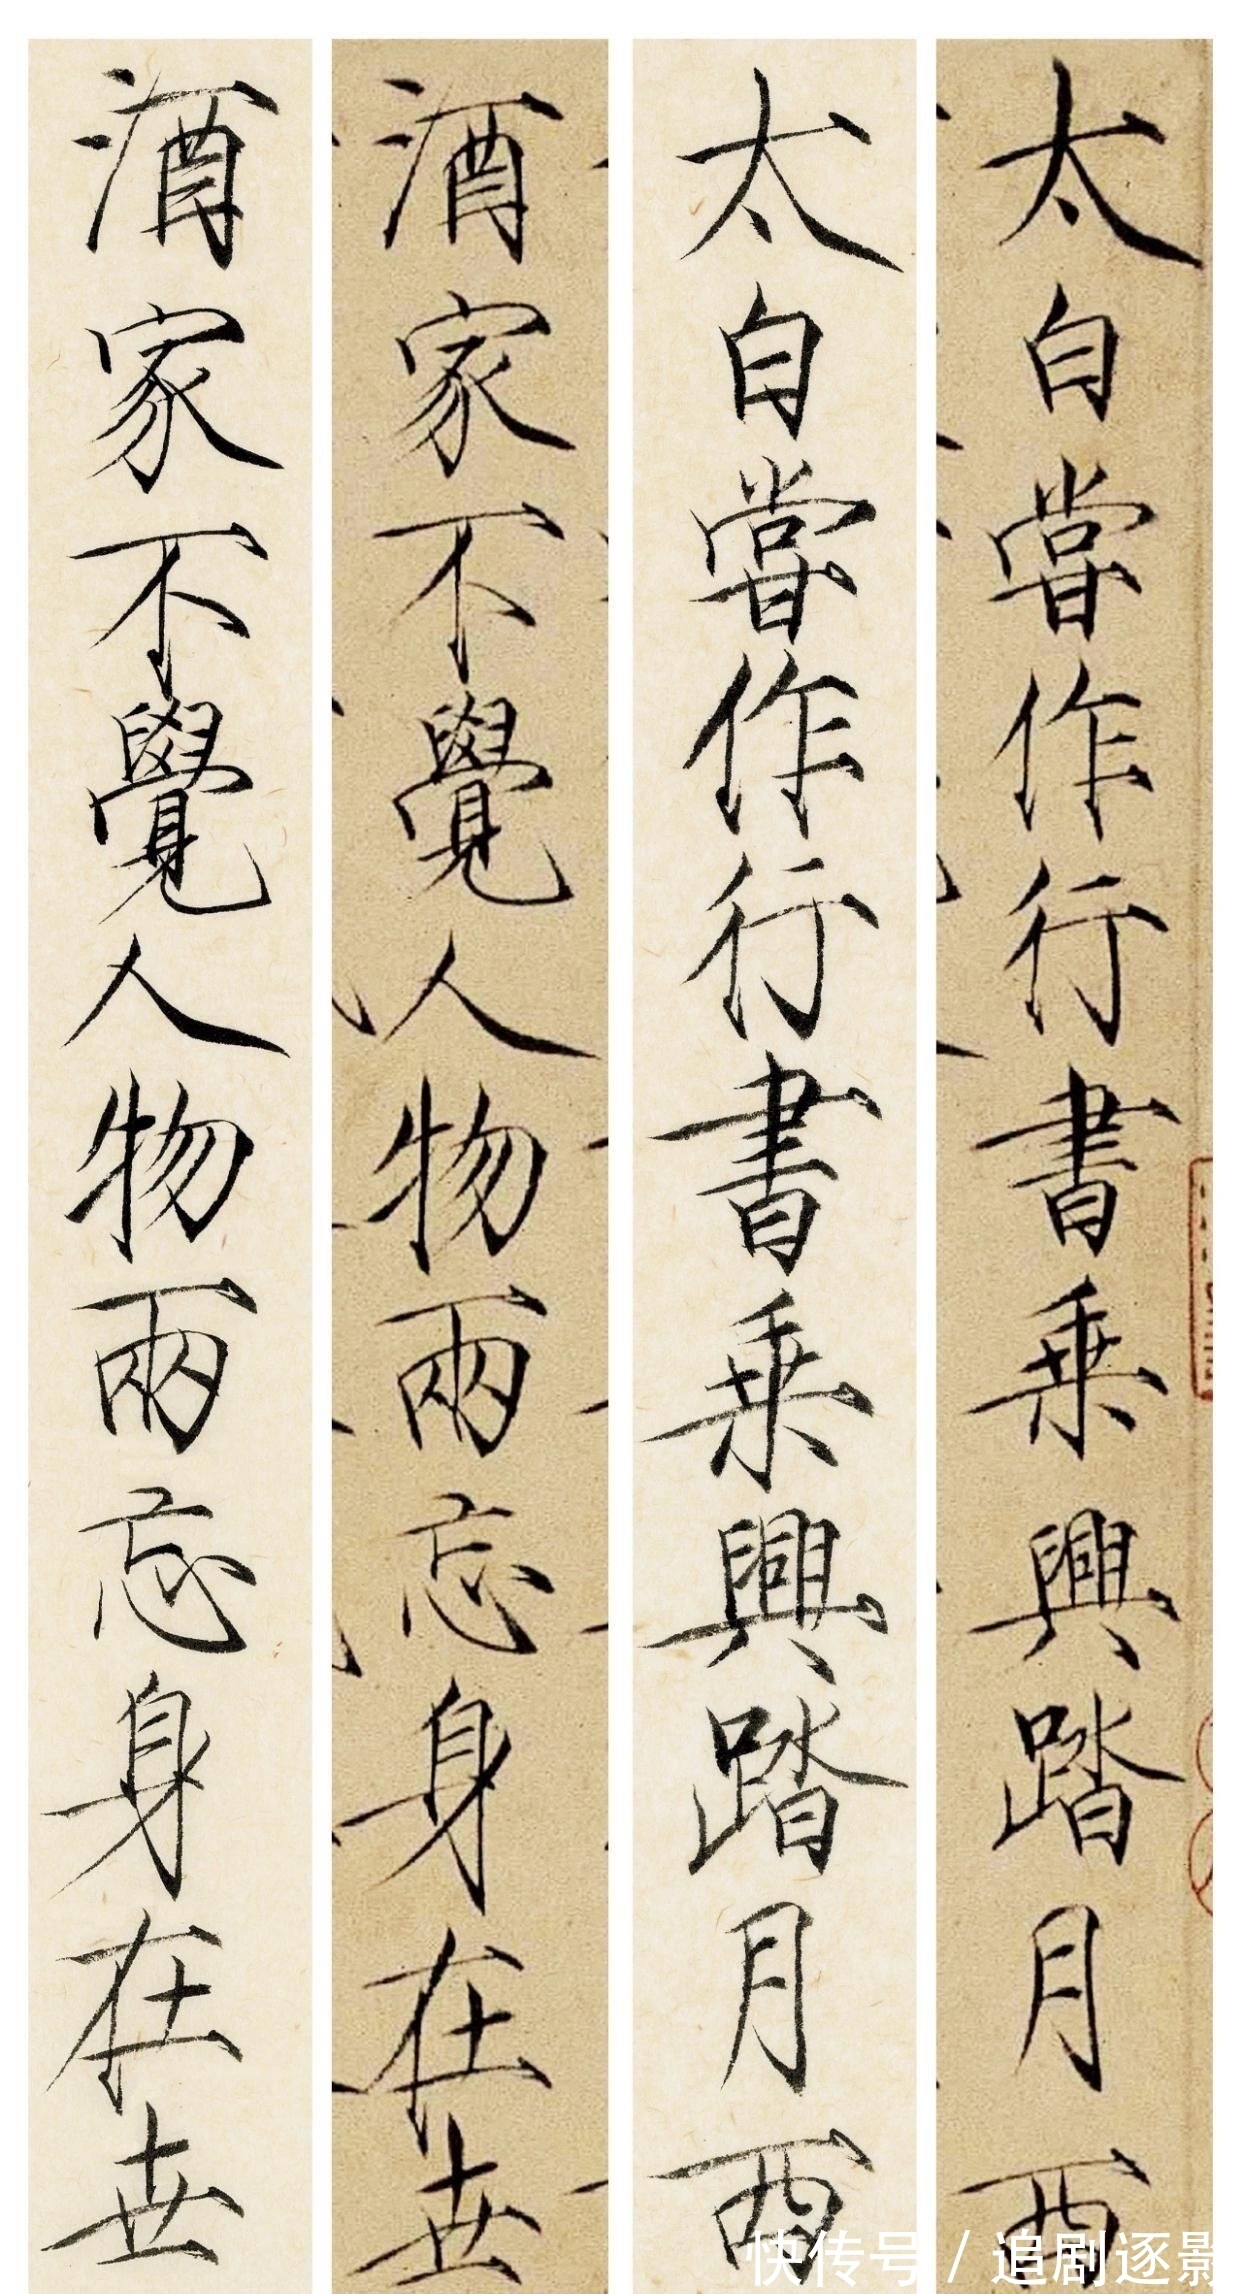 太白嘗作行書乘興踏月西
太白嘗作行書乘興踏月西
酒家不覺人物兩忘身在世
酒家不覺人物兩忘身在世
快传号 / 追剧逐影